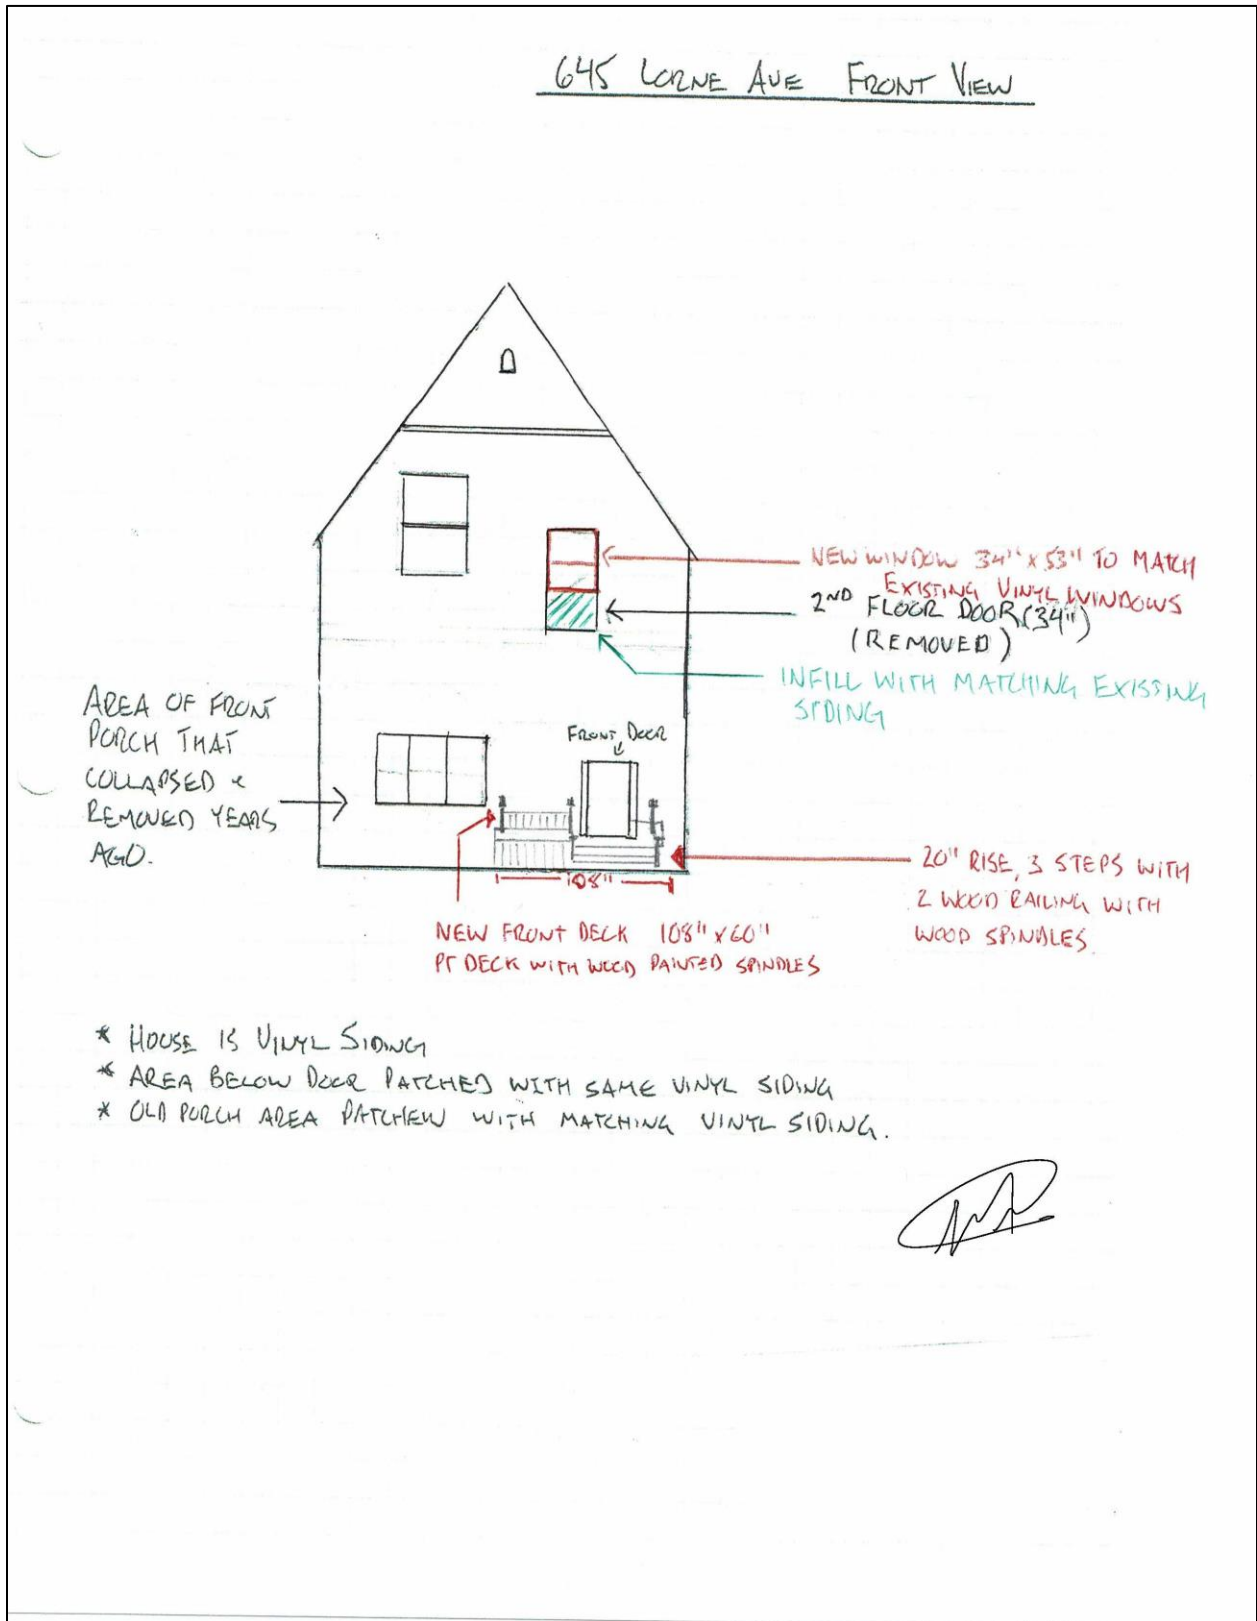 645 LORNE AVE FRONT VIEW
NEW WINDOW 34" x 53" TO MATCH
EXISTING VINYL WINDOWS
2ND FLOOR DOOR (34")
(REMOVED)
INFILL WITH MATCHING EXISTING
SIDING
AREA OF FRONT
PORCH THAT
COLLAPSED &
REMOVED YEARS
AGO.
FRONT DOOR
108"
20" RISE, 3 STEPS WITH
2 WOOD RAILING WITH
WOOD SPINDLES.
NEW FRONT DECK 108" x 60"
PT DECK WITH WOOD PAINTED SPINDLES
* HOUSE IS VINYL SIDING
* AREA BELOW DOOR PATCHED WITH SAME VINYL SIDING
* OLD PORCH AREA PATCHEW WITH MATCHING VINYL SIDING.